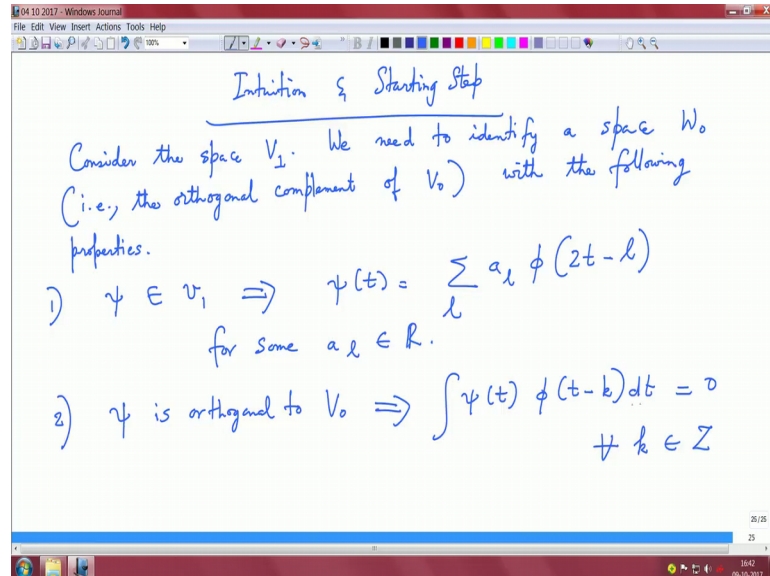 04 10 2017 - Windows Journal
File Edit View Insert Actions Tools Help
100%
Intuition & Starting Step
Consider the space V₁. We need to identify a space W₀
(i.e., the orthogonal complement of V₀) with the following
properties.
1) ψ ∈ v₁ ⇒ ψ(t) = ∑ₗ aₗ ϕ(2t-l)
for some aₗ ∈ R.
2) ψ is orthogonal to V₀ ⇒ ∫ψ(t) ϕ(t-k)dt = 0
∀ k ∈ Z
25/25
25
16:42
09-10-2017